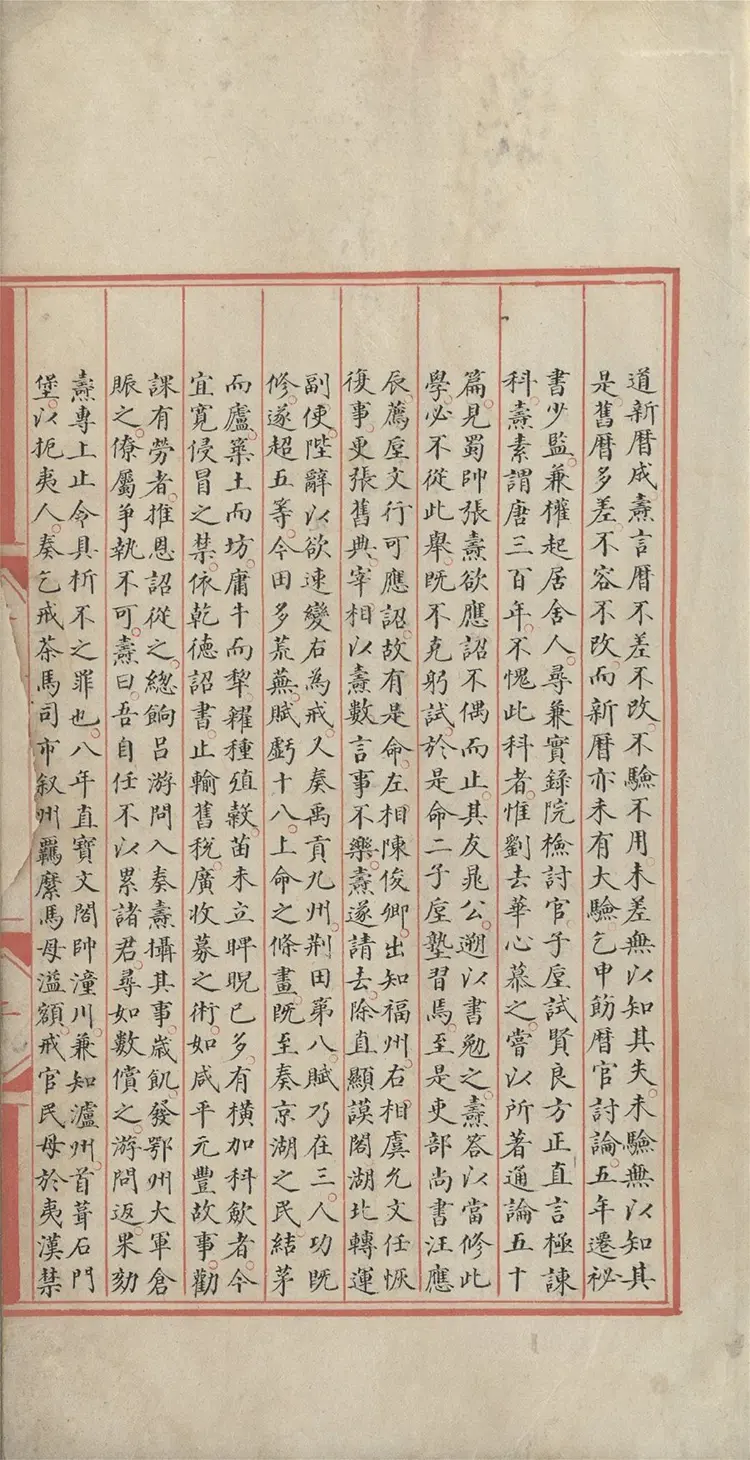 道新暦成燾言暦不差不改不驗不用未差無以知其失未驗無以知其
是舊暦多差不容不改而新暦亦未有大驗乞申飭暦官討論五年遷祕
書少監兼權起居舍人尋兼實錄院檢討官子垕試賢良方正直言極諫
科燾素謂唐三百年不愧此科者惟劉去華心慕之嘗以所著通論五十
篇見蜀帥張燾欲應詔不偶而止其友晁公遡以書勉之燾答以當修此
學必不從此舉既不克躬試於是命二子垕塾習焉至是吏部尚書汪應
辰薦垕文行可應詔故有是命左相陳俊卿出知福州右相虞允文任恢
復事更張舊典宰相以燾數言事不樂燾遂請去除直顯謨閣湖北轉運
副使陛辭以欲速變右為戒又奏禹貢九州荆田第八賦乃在三人功既
修遂超五等今田多荒蕪賦虧十八上命之條畫既至奏京湖之民結茅
而廬築土而坊庸牛而犂糴種殖穀苗未立睥睨已多有橫加科歛者今
宜寛侵冒之禁依乾德詔書止輸舊稅廣收募之術如咸平元豐故事勸
課有勞者推恩詔從之總餉呂游問入奏燾攝其事歲飢發鄂州大軍倉
賑之僚屬爭執不可燾曰吾自任不以累諸君尋如數償之游問返果劾
燾專上止令具析不之罪也八年直寶文閣帥潼川兼知瀘州首葺石門
堡以扼夷人奏乞戒茶馬司市叙州羈縻馬毋溢額戒官民毋於夷漢禁